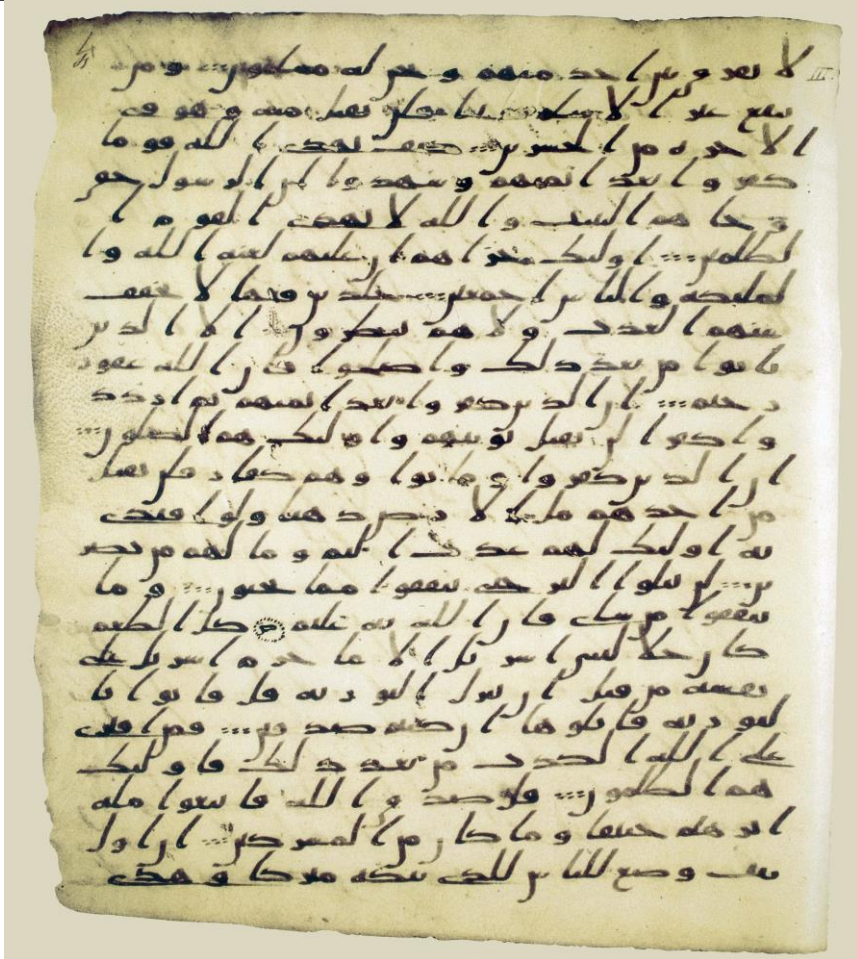 لا نفرق بين احد منهم ونحن له مسلمون ومن
يبتغ غير الاسلم دينا فلن يقبل منه وهو في
الاخرة من الخسرين كيف يهدي الله قوما
كفروا بعد ايمنهم وشهدوا ان الرسول حق
وجاهم البينت والله لا يهدي القوم ا
لظلمين اوليك جزاهم ان عليهم لعنة الله وا
لمليكة والناس اجمعين خلدين فيها لا يخفف
عنهم العذب ولا هم ينظرون الا الذين
تابوا من بعد ذلك واصلحوا فان الله غفور
رحيم ان الذين كفروا بعد ايمنهم ثم ازدد
وا كفرا لن تقبل توبتهم واوليك هم الضلون
ان الذين كفروا وماتوا وهم كفار فلن يقبل
من احدهم مل الارض ذهبا ولو افتدى
به اوليك لهم عذب اليم وما لهم من نصر
ين لن تنلوا البر حتى تنفقوا مما تحبون وما
تنفقوا من شي فان الله به عليم كل الطعم
كان حلا لبني اسريل الا ما حرم اسريل على
نفسه من قبل ان تنزل التورية قل فاتوا با
لتورية فاتلوها ان كنتم صدقين فمن افترى
على الله الكذب من بعد ذلك فاوليك
هم الظلمون قل صدق الله فاتبعوا ملة
ابرهيم حنيفا وما كان من المشركين ان اول
بيت وضع للناس للذي ببكة مبركا وهدى